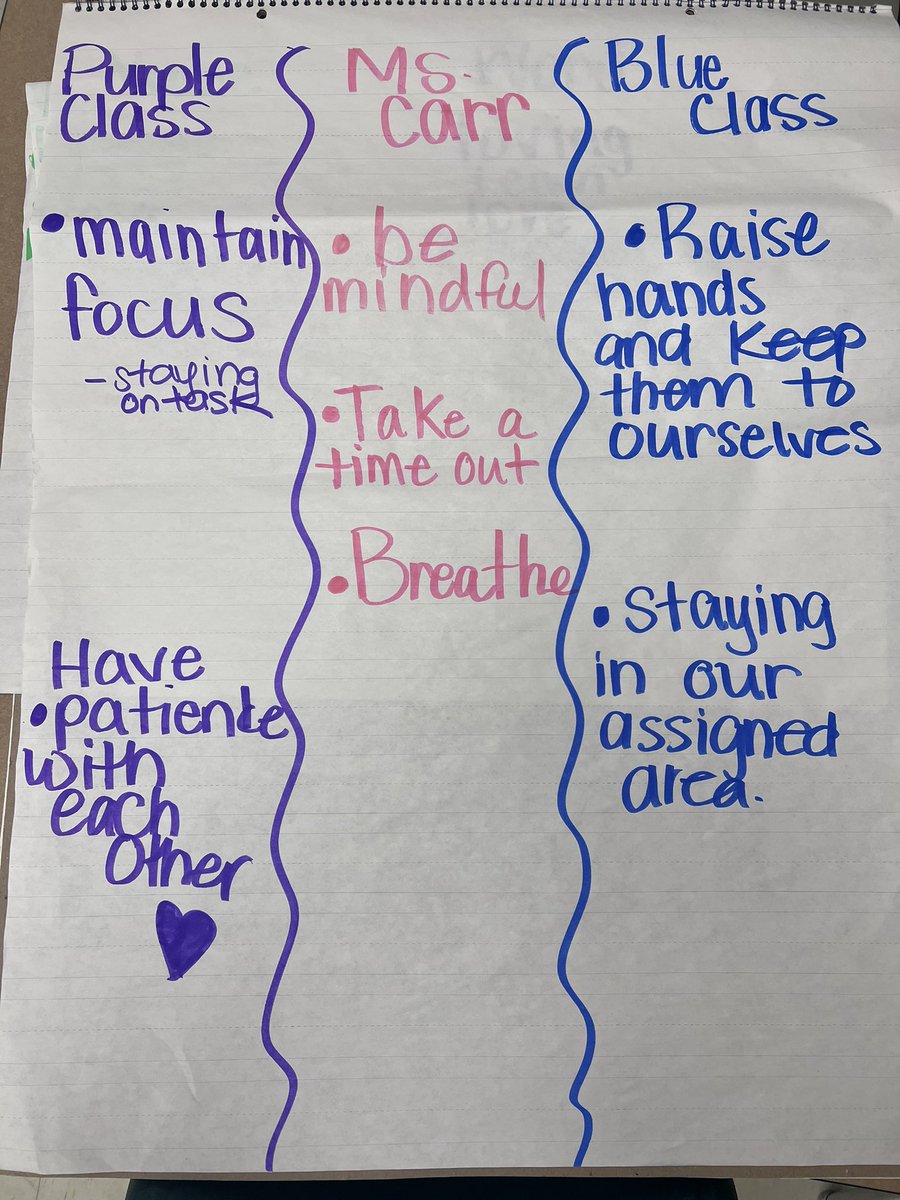 Purple
Class
• maintain
focus
- staying
on task
Have
• patience
with
each
Other
Ms.
Carr
• be
mindful
• Take a
time out
• Breathe
Blue
Class
• Raise
hands
and keep
them to
ourselves
• Staying
in our
assigned
area.